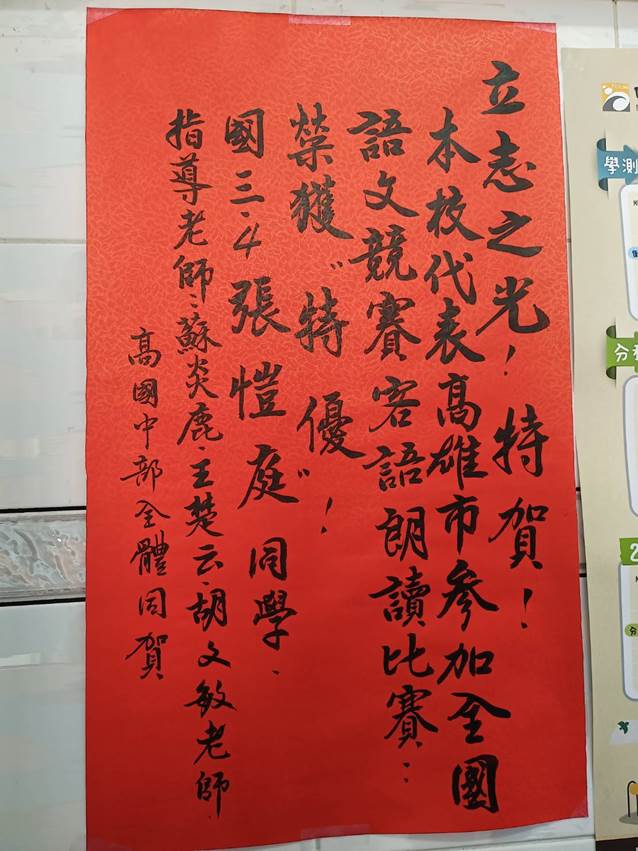 立志之光！特賀！
本校代表高雄市參加全國
語文競賽客語朗讀比賽：
榮獲"特優"！
國三.4張愷庭同學、
指導老師：蘇炎鹿、王楚云、胡文敏老師
高國中部全體同賀
學測
分
2